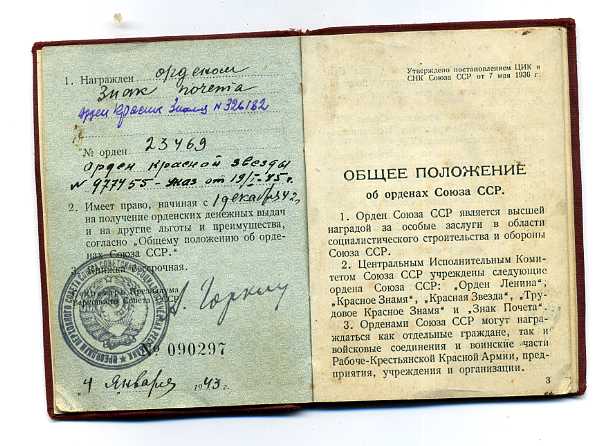 1. Награжден орденом
Знак почета
Орден Красное Знамя № 326182
№ орден 23469
Орден Красной звезды
№ 977455 - указ от 19/I-45 г.
2. Имеет право, начиная с 1 декабря 42,
на получение орденских денежных выдач
и на другие льготы и преимущества,
согласно „Общему положению об орде-
нах Союза ССР."
Книжка бессрочная.
Президиума
Верховного Совета СССР
А. Горкин
№ 090297
4 Января 1943 г.
Утверждено постановлением ЦИК и
СНК Союза ССР от 7 мая 1936 г.
ОБЩЕЕ ПОЛОЖЕНИЕ
об орденах Союза ССР.
1. Орден Союза ССР является высшей
наградой за особые заслуги в области
социалистического строительства и обороны
Союза ССР.
2. Центральным Исполнительным Коми-
тетом Союза ССР учреждены следующие
ордена Союза ССР: „Орден Ленина",
„Красное Знамя", „Красная Звезда", „Тру-
довое Красное Знамя" и „Знак Почета".
3. Орденами Союза ССР могут награ-
ждаться как отдельные граждане, так и
войсковые соединения и воинские части
Рабоче-Крестьянской Красной Армии, пред-
приятия, учреждения и организации.
3